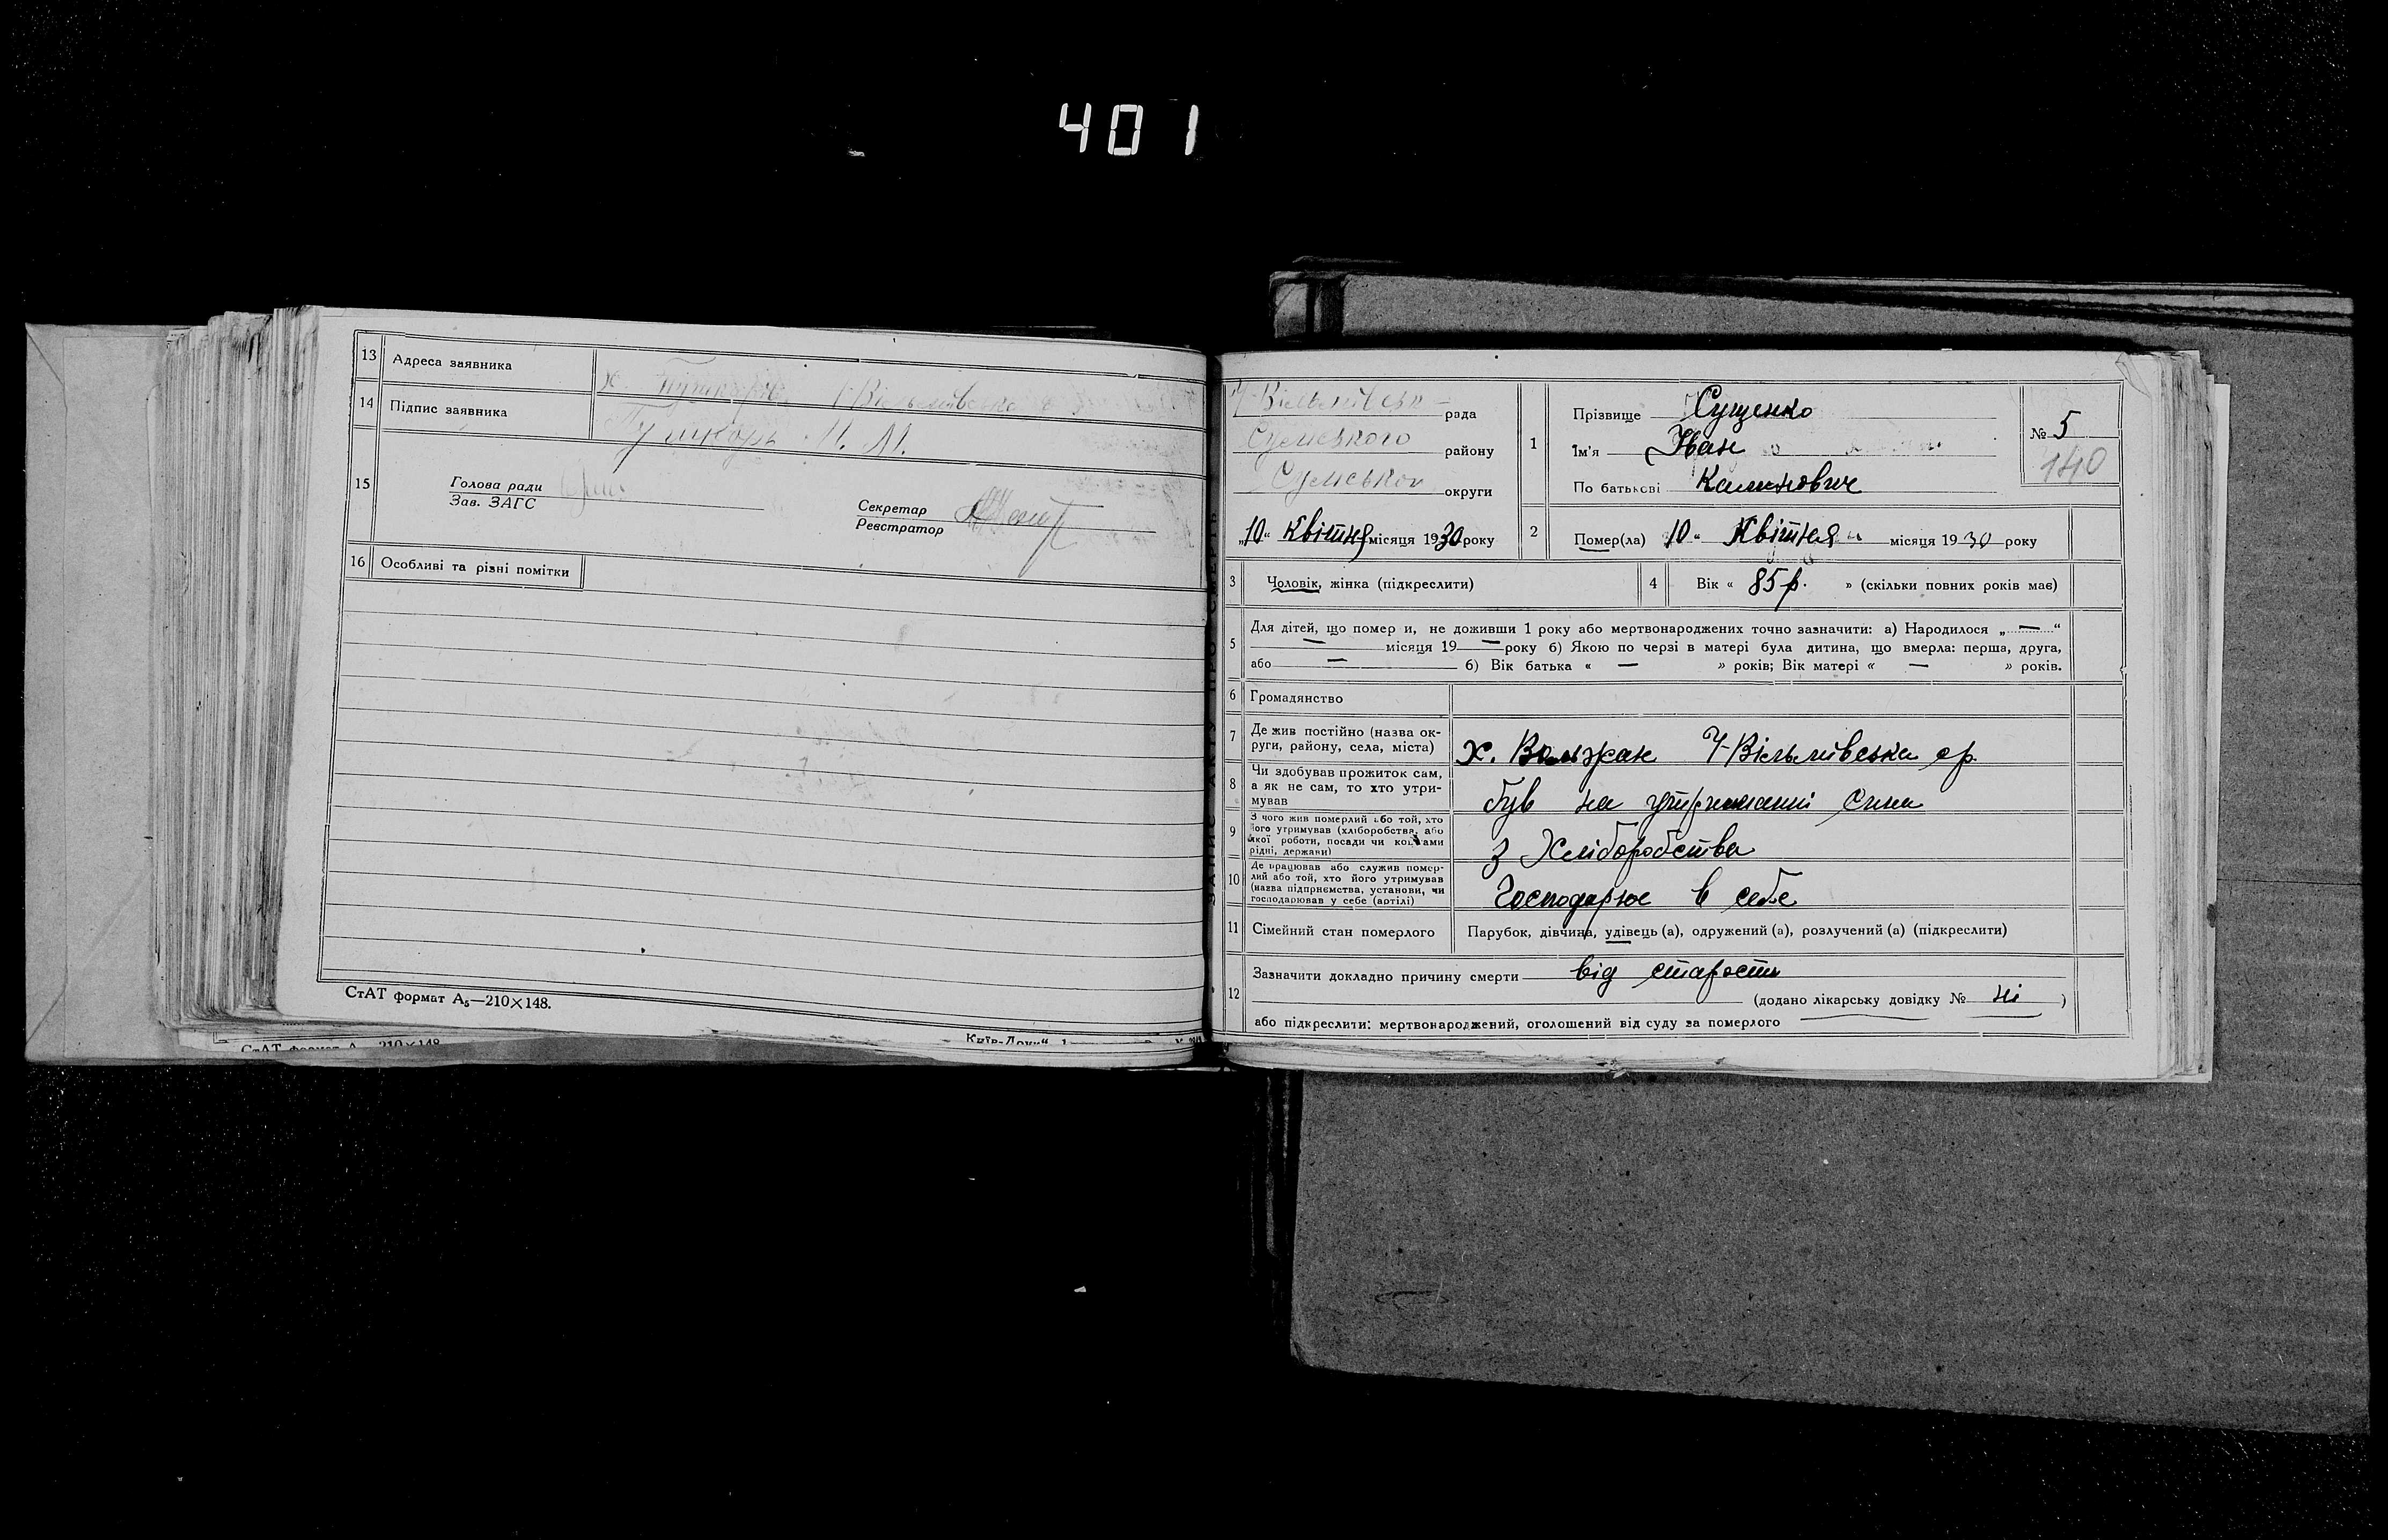 401
13 Адреса заявника х.
14 Підпис заявника Пушкарь М. М.
15 Голова ради
Зав. ЗАГС
Секретар
Реєстратор
16 Особливі та різні помітки
СтАТ формат А₅—210×148.
СтАТ формат А 210×148
Київ-Друк"
рада
Сумського району
Сумськог округи
„10" Квітня місяця 1930 року
1 Прізвище Сущенко
Ім'я Іван
По батькові Калинович
№ 5
140
2 Помер(ла) 10 " Квітня місяця 1930 року
3 Чоловік, жінка (підкреслити)
4 Вік « 85 р. » (скільки повних років має)
5 Для дітей, що помер и, не доживши 1 року або мертвонароджених точно зазначити: а) Народилося „ — "
— місяця 19 — року б) Якою по черзі в матері була дитина, що вмерла: перша, друга,
або — б) Вік батька « — » років; Вік матері « — » років.
6 Громадянство
7 Де жив постійно (назва ок-
руги, району, села, міста)
х. Вольжан У-Вільмівська ср.
8 Чи здобував прожиток сам,
а як не сам, то хто утри-
мував
був на утриманні сина
9 З чого жив померлий або той, хто
його утримував (хліборобства, або
якої роботи, посади чи коштами
рідні, держави)
з Хліборобства
10 Де працював або служив помер-
лий або той, хто його утримував
(назва підприємства, установи, чи
господарював у себе (артілі)
Господарює в себе
11 Сімейний стан померлого Парубок, дівчина, удівець (а), одружений (а), розлучений (а) (підкреслити)
12 Зазначити докладно причину смерти від старости
(додано лікарську довідку № ні )
або підкреслити: мертвонароджений, оголошений від суду за померлого